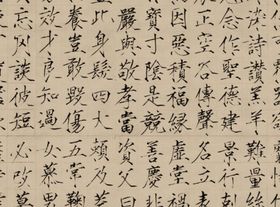 染詩讚羔羊難量墨
念作聖德建景行維
正空谷傳聲名立形
因惡積福緣虛堂習
寶寸陰是競善慶尺
嚴與敬孝當資父事
此身髮四大賴及萬
養豈敢毀傷五常恭
良知過女慕
忘罔談彼短必改